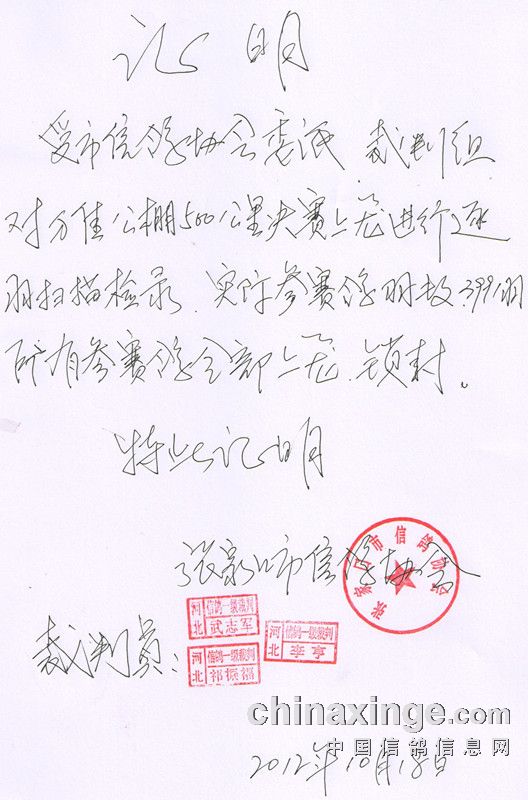 证明
受市信鸽协会委派 裁判组
对万佳公棚500公里决赛上笼进行逐
羽扫描检录.实际参赛鸽羽数399羽
所有参赛鸽全部上笼.锁封。
特此证明
张家口市信鸽协会
张家口市信鸽协会
裁判员:
河北 信鸽一级裁判 武志军
河北 信鸽一级裁判 李亨
河北 信鸽一级裁判 祁振福
chinaxinge.com
中国信鸽信息网
2012年10月18日